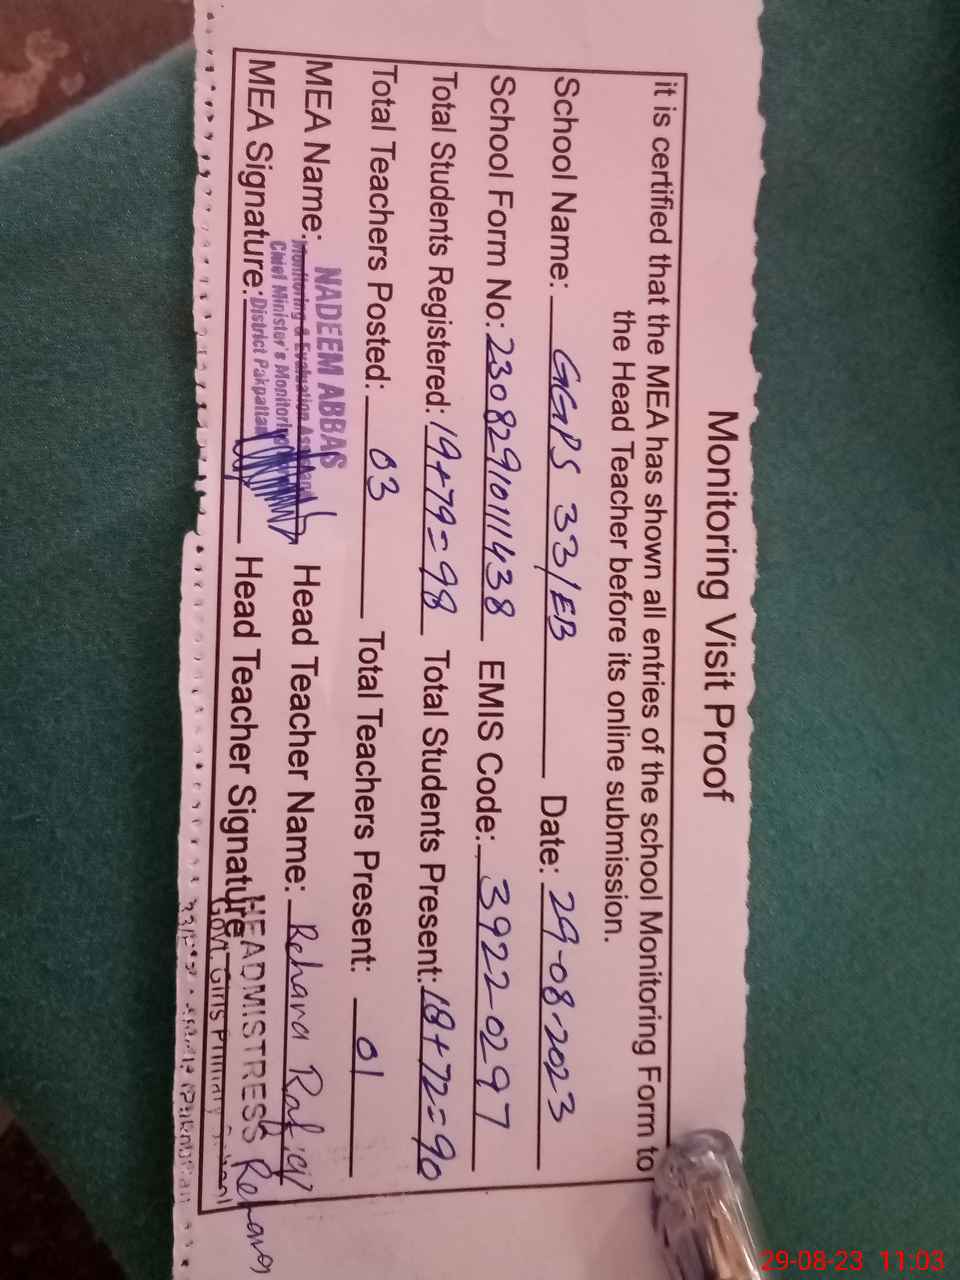 Monitoring Visit Proof
it is certified that the MEA has shown all entries of the school Monitoring Form to
the Head Teacher before its online submission.
School Name: GGPS 33/EB Date: 29-08-2023
School Form No: 23082910111438 EMIS Code: 3922-0297
Total Students Registered: 19+79=98 Total Students Present: 18+72=90
Total Teachers Posted: 03 Total Teachers Present: 01
MEA Name: NADEEM ABBAS Head Teacher Name: Rehana
Monitoring & Evaluation
Chief Minister's Monitoring
District Pakpattan
MEA Signature: Head Teacher Signature
HEADMISTRESS Rehana
Govt. Girls Primary School
29-08-23 11:03